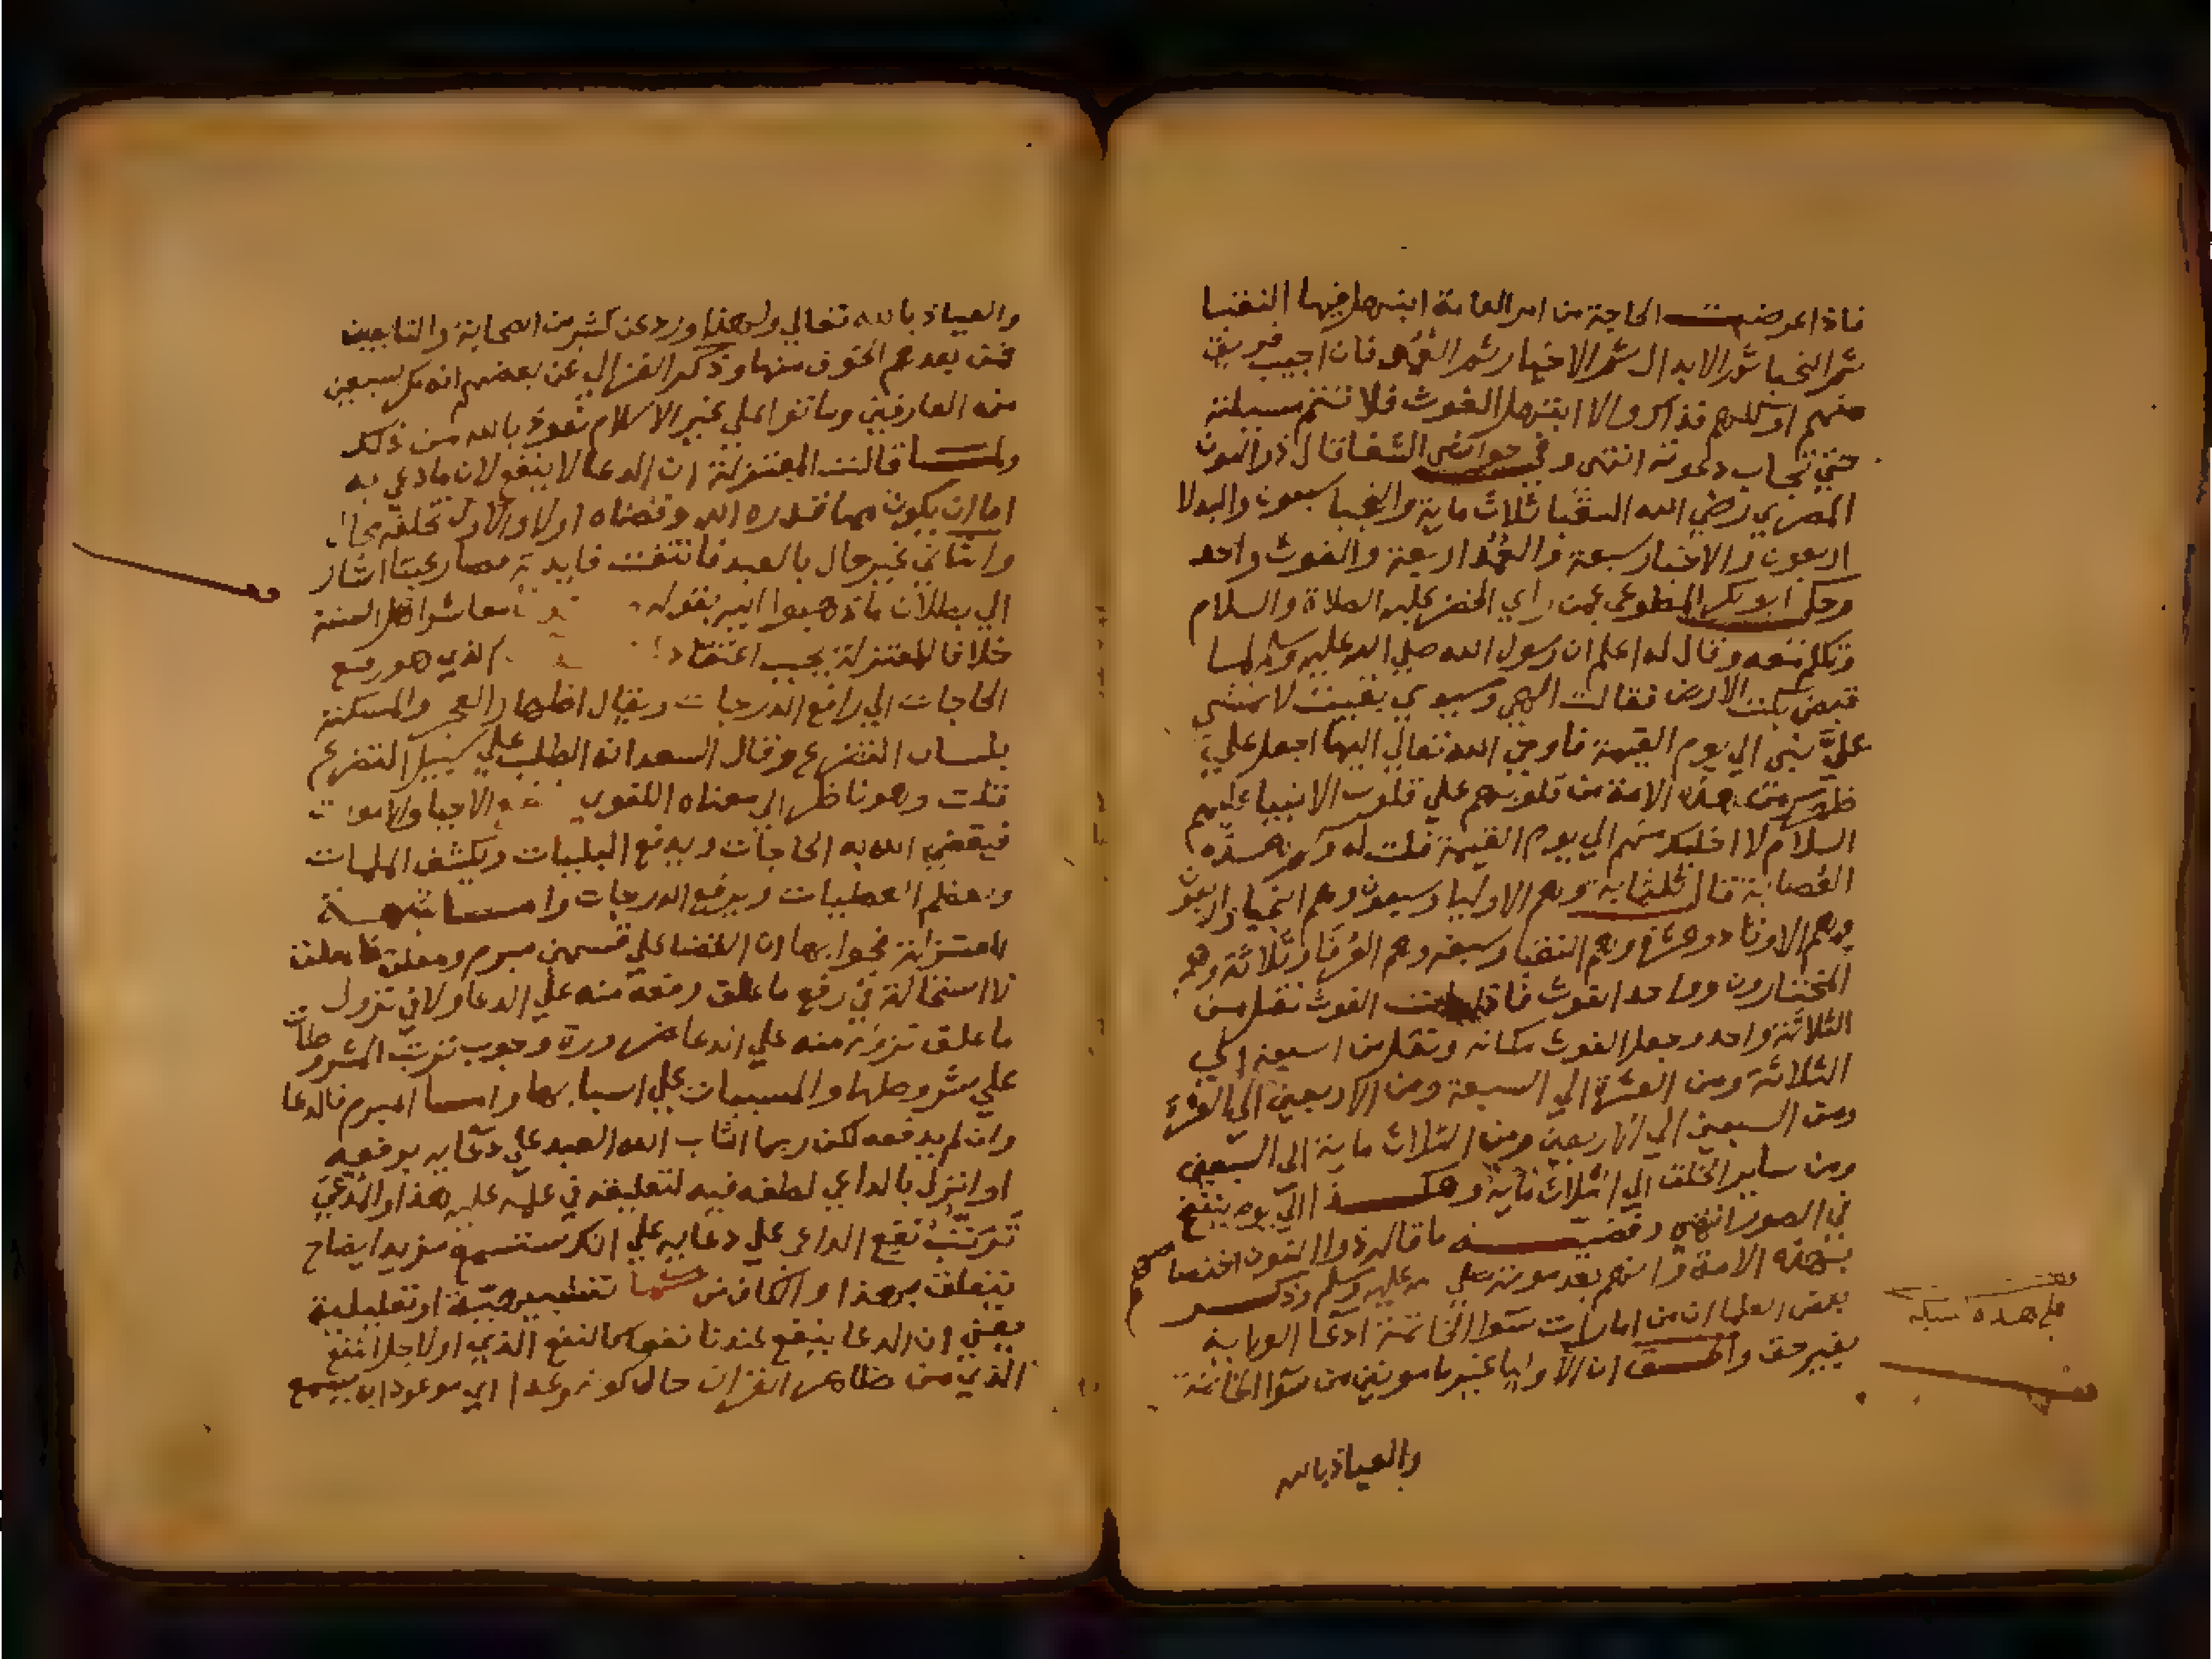 فاذا عرضت الحاجة من امر العامة ابتهل فيها النقبا
ثم النجبا ثم الابدال ثم الاخيار ثم العمد فان اجيب فريق
منهم او كلهم فذاك والا ابتهل الغوث فلا تتم مسيلته
حتي تجاب دعوته انتهي وفي حواشي الشفا قال ذو النون
المصري رضي الله النقبا ثلاث ماية والنجبا سبعون والبدلا
اربعون والاخيار سبعة والعمد اربعة والغوث واحد
وحكي ابو بكر المطوعي عمن راي الخضر عليه الصلاة والسلام
وتكلم معه وقال له اعلم ان رسول الله صلي الله عليه وسلم لما
قبض بكت الارض فقالت الهي وسيدي بقيت لا يمشي
علي نبي الي يوم القيمة فاوحي الله تعالي اليها اجعل علي
ظهرك من هذه الامة من قلوبهم علي قلوب الانبيا عليهم
السلام لا اخليك منهم الي يوم القيمة قلت له وكم هذه
العصابة قال ثلثماية وهم الاوليا وسبعون وهم النجبا واربعون
وهم الاوتاد وعشرة وهم النقبا وسبعة وهم العرفا وثلاثة وهم
المختارون وواحد الغوث فاذا مات الغوث نقل من
الثلاثة واحد وجعل الغوث مكانه ونقل من السبعة الي
الثلاثة ومن العشرة الي السبعة ومن الاربعين الي العشرة
ومن السبعين الي الاربعين ومن الثلاث ماية الي السبعين
ومن ساير الخلق الي الثلاث ماية وهكذا الي يوم ينفخ
في الصور انتهي وقضية ما قاله ذوا النون اختصاصهم
بهذه الامة وانهم بعد موته صلي عليه وسلم وذكر
بعض العلما ان من امارات سوا الخاتمة ادعا الولاية
بغير حق والحق ان الاوليا غير مامونين من سوا الخاتمة
والعياذ بالله
علي هذه
والعياذ بالله تعالي ولهذا ورد عن كثير من الصحابة والتابعين
فمن بعدهم الخوف منها وذكر الغزالي عن بعضهم انه سبعين
من العارفين وماتوا علي غير الاسلام نعوذ بالله من ذلك
ولما قالت المعتزلة ان الدعا لا ينفع لان ما دعي به
اما ان يكون مما قدره الله وقضاه اولا والاول تخلفه محال
والثاني غير حال بالعبد فانتفت فايدته فصار عبثا اشار
الي بطلان ما ذهبوا اليه بقوله معاشر اهل السنة
خلافا للمعتزلة يجب اعتقاد الذي هو رفع
الحاجات الي رافع الدرجات ويقال اظهار العجز والمسكنة
بلسان التضرع وقال السعد انه الطلب علي سبيل التضرع
قلت وهو ناظر الي معناه اللغوي الاحيا والاموات
فيقضي الله به الحاجات ويدفع البليات ويكشف الملمات
ويعظم العطيات ويرفع الدرجات واما شبهة
المعتزلة فجوابها ان القضا علي قسمين مبرم ومعلق فالمعلق
لا استحالة في رفع ما علق رفعه منه علي الدعا ولا في نزول
ما علق نزوله منه علي الدعا ضرورة وجوب ترتب المشروطات
علي شروطها والمسببات علي اسبابها واما المبرم فالدعا
وان لم يدفعه لكن ربما اثاب الله العبد علي دعايه برفعه
او انزل بالداعي لطفه فيه لتعليقه في علمه عليه هذا والمدعي
ترتب نفع الداعي علي دعايه علي انك ستسمع مزيد ايضاح
يتعلق بهذا والكاف من كما تشبيهية او تعليلية
يعني ان الدعا ينفع عندنا نفعا كالنفع الذي او لاجل النفع
الذي من ظاهر القران حال كونه وعدا اي موعودا به يسمع